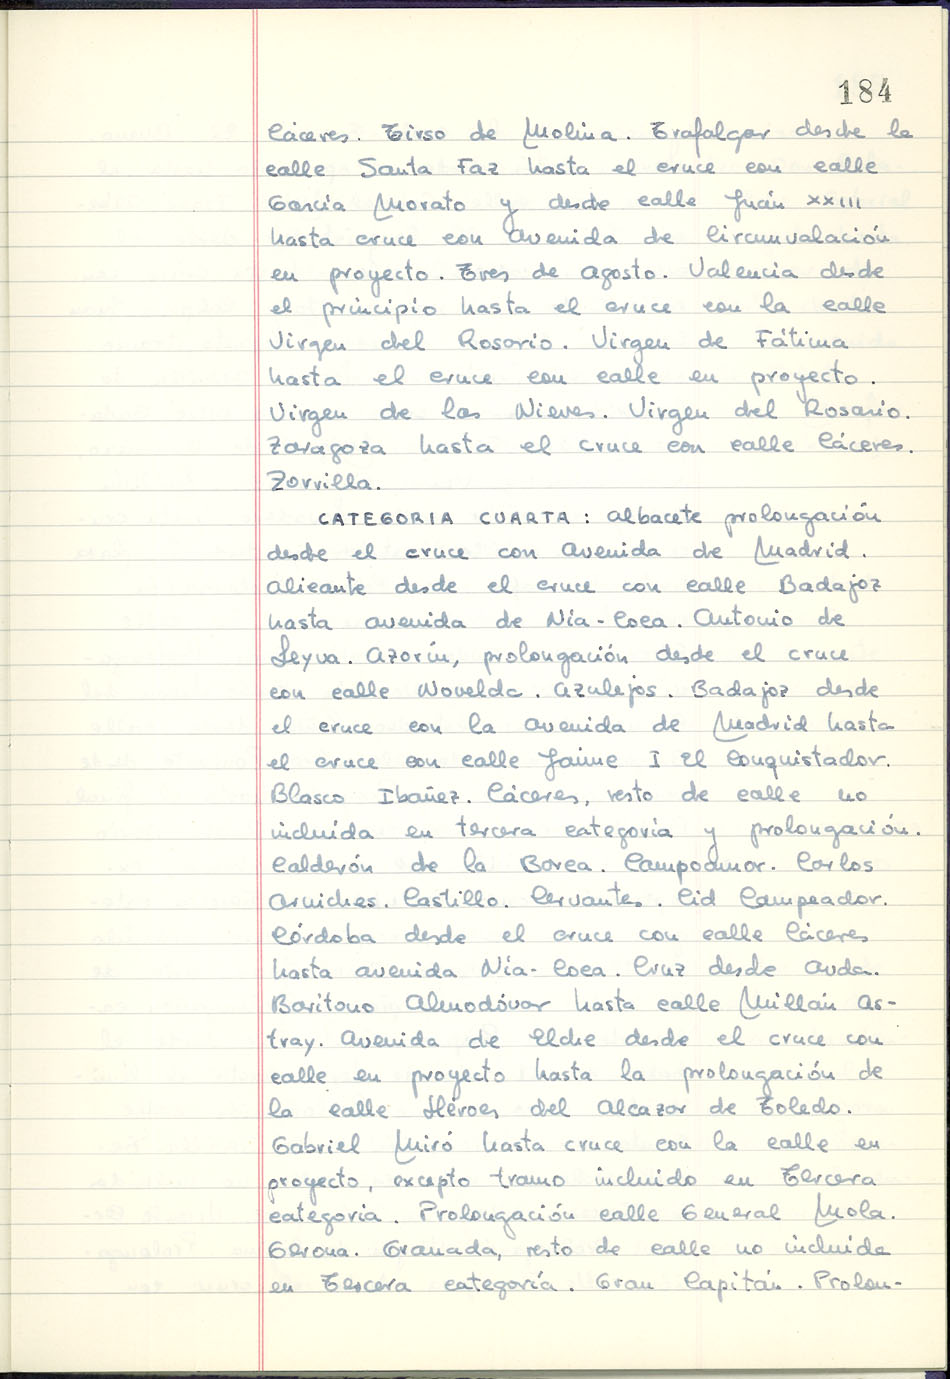 184
Cáceres. Tirso de Molina. Trafalgar desde la
calle Santa Faz hasta el cruce con calle
García Morato y desde calle Juán XXIII
hasta cruce con Avenida de Circunvalación
en proyecto. Tres de Agosto. Valencia desde
el principio hasta el cruce con la calle
Virgen del Rosario. Virgen de Fátima
hasta el cruce con calle en proyecto.
Virgen de las Nieves. Virgen del Rosario.
Zaragoza hasta el cruce con calle Cáceres.
Zorrilla.
CATEGORIA CUARTA: Albacete prolongación
desde el cruce con Avenida de Madrid.
Alicante desde el cruce con calle Badajoz
hasta avenida de Nía-Coca. Antonio de
Leyva. Azorín, prolongación desde el cruce
con calle Novelda. Azulejos. Badajoz desde
el cruce con la avenida de Madrid hasta
el cruce con calle Jaime I El Conquistador.
Blasco Ibañez. Cáceres, resto de calle no
incluida en tercera categoría y prolongación.
Calderón de la Barca. Campoamor. Carlos
Arniches. Castillo. Cervantes. Cid Campeador.
Córdoba desde el cruce con calle Cáceres
hasta avenida Nía-Coca. Cruz desde Avda.
Barítono Almodóvar hasta calle Millán As-
tray. Avenida de Elche desde el cruce con
calle en proyecto hasta la prolongación de
la calle Héroes del Alcazar de Toledo.
Gabriel Miró hasta cruce con la calle en
proyecto, excepto tramo incluido en Tercera
categoria. Prolongación calle General Mola.
Gerona. Granada, resto de calle no incluida
en Tercera categoría. Gran Capitán. Prolon-